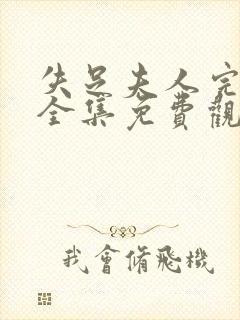 失足夫人完
全集免費觀
我會脩飛機